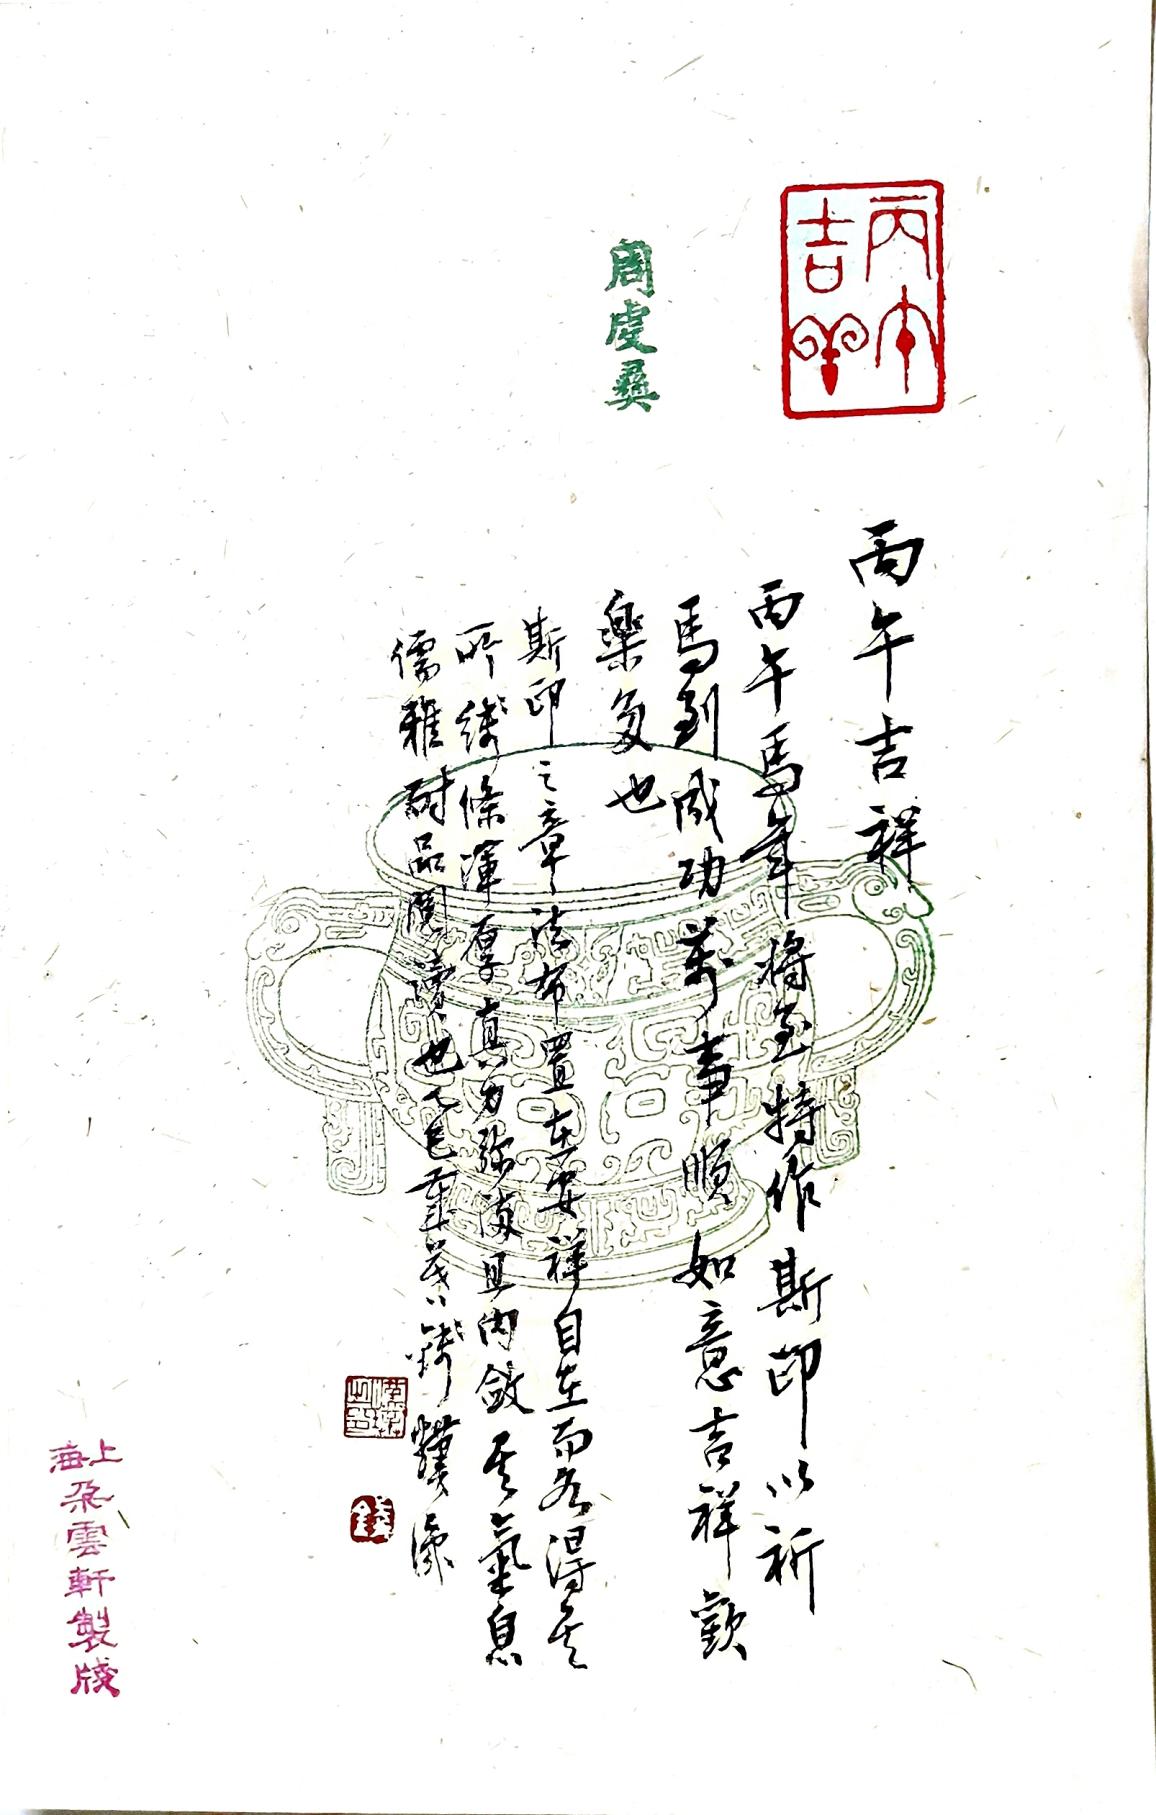 丙午吉祥
周虔彝
丙午吉祥
丙午馬年將至特作斯印以祈
馬到成功萬事順如意吉祥歡
樂多也
斯印之章法布置安祥自在而各得其
所線條渾厚真力弥滿且内斂其氣息
儒雅耐品閱讀也乙巳年
錢
上海朵雲軒製牋